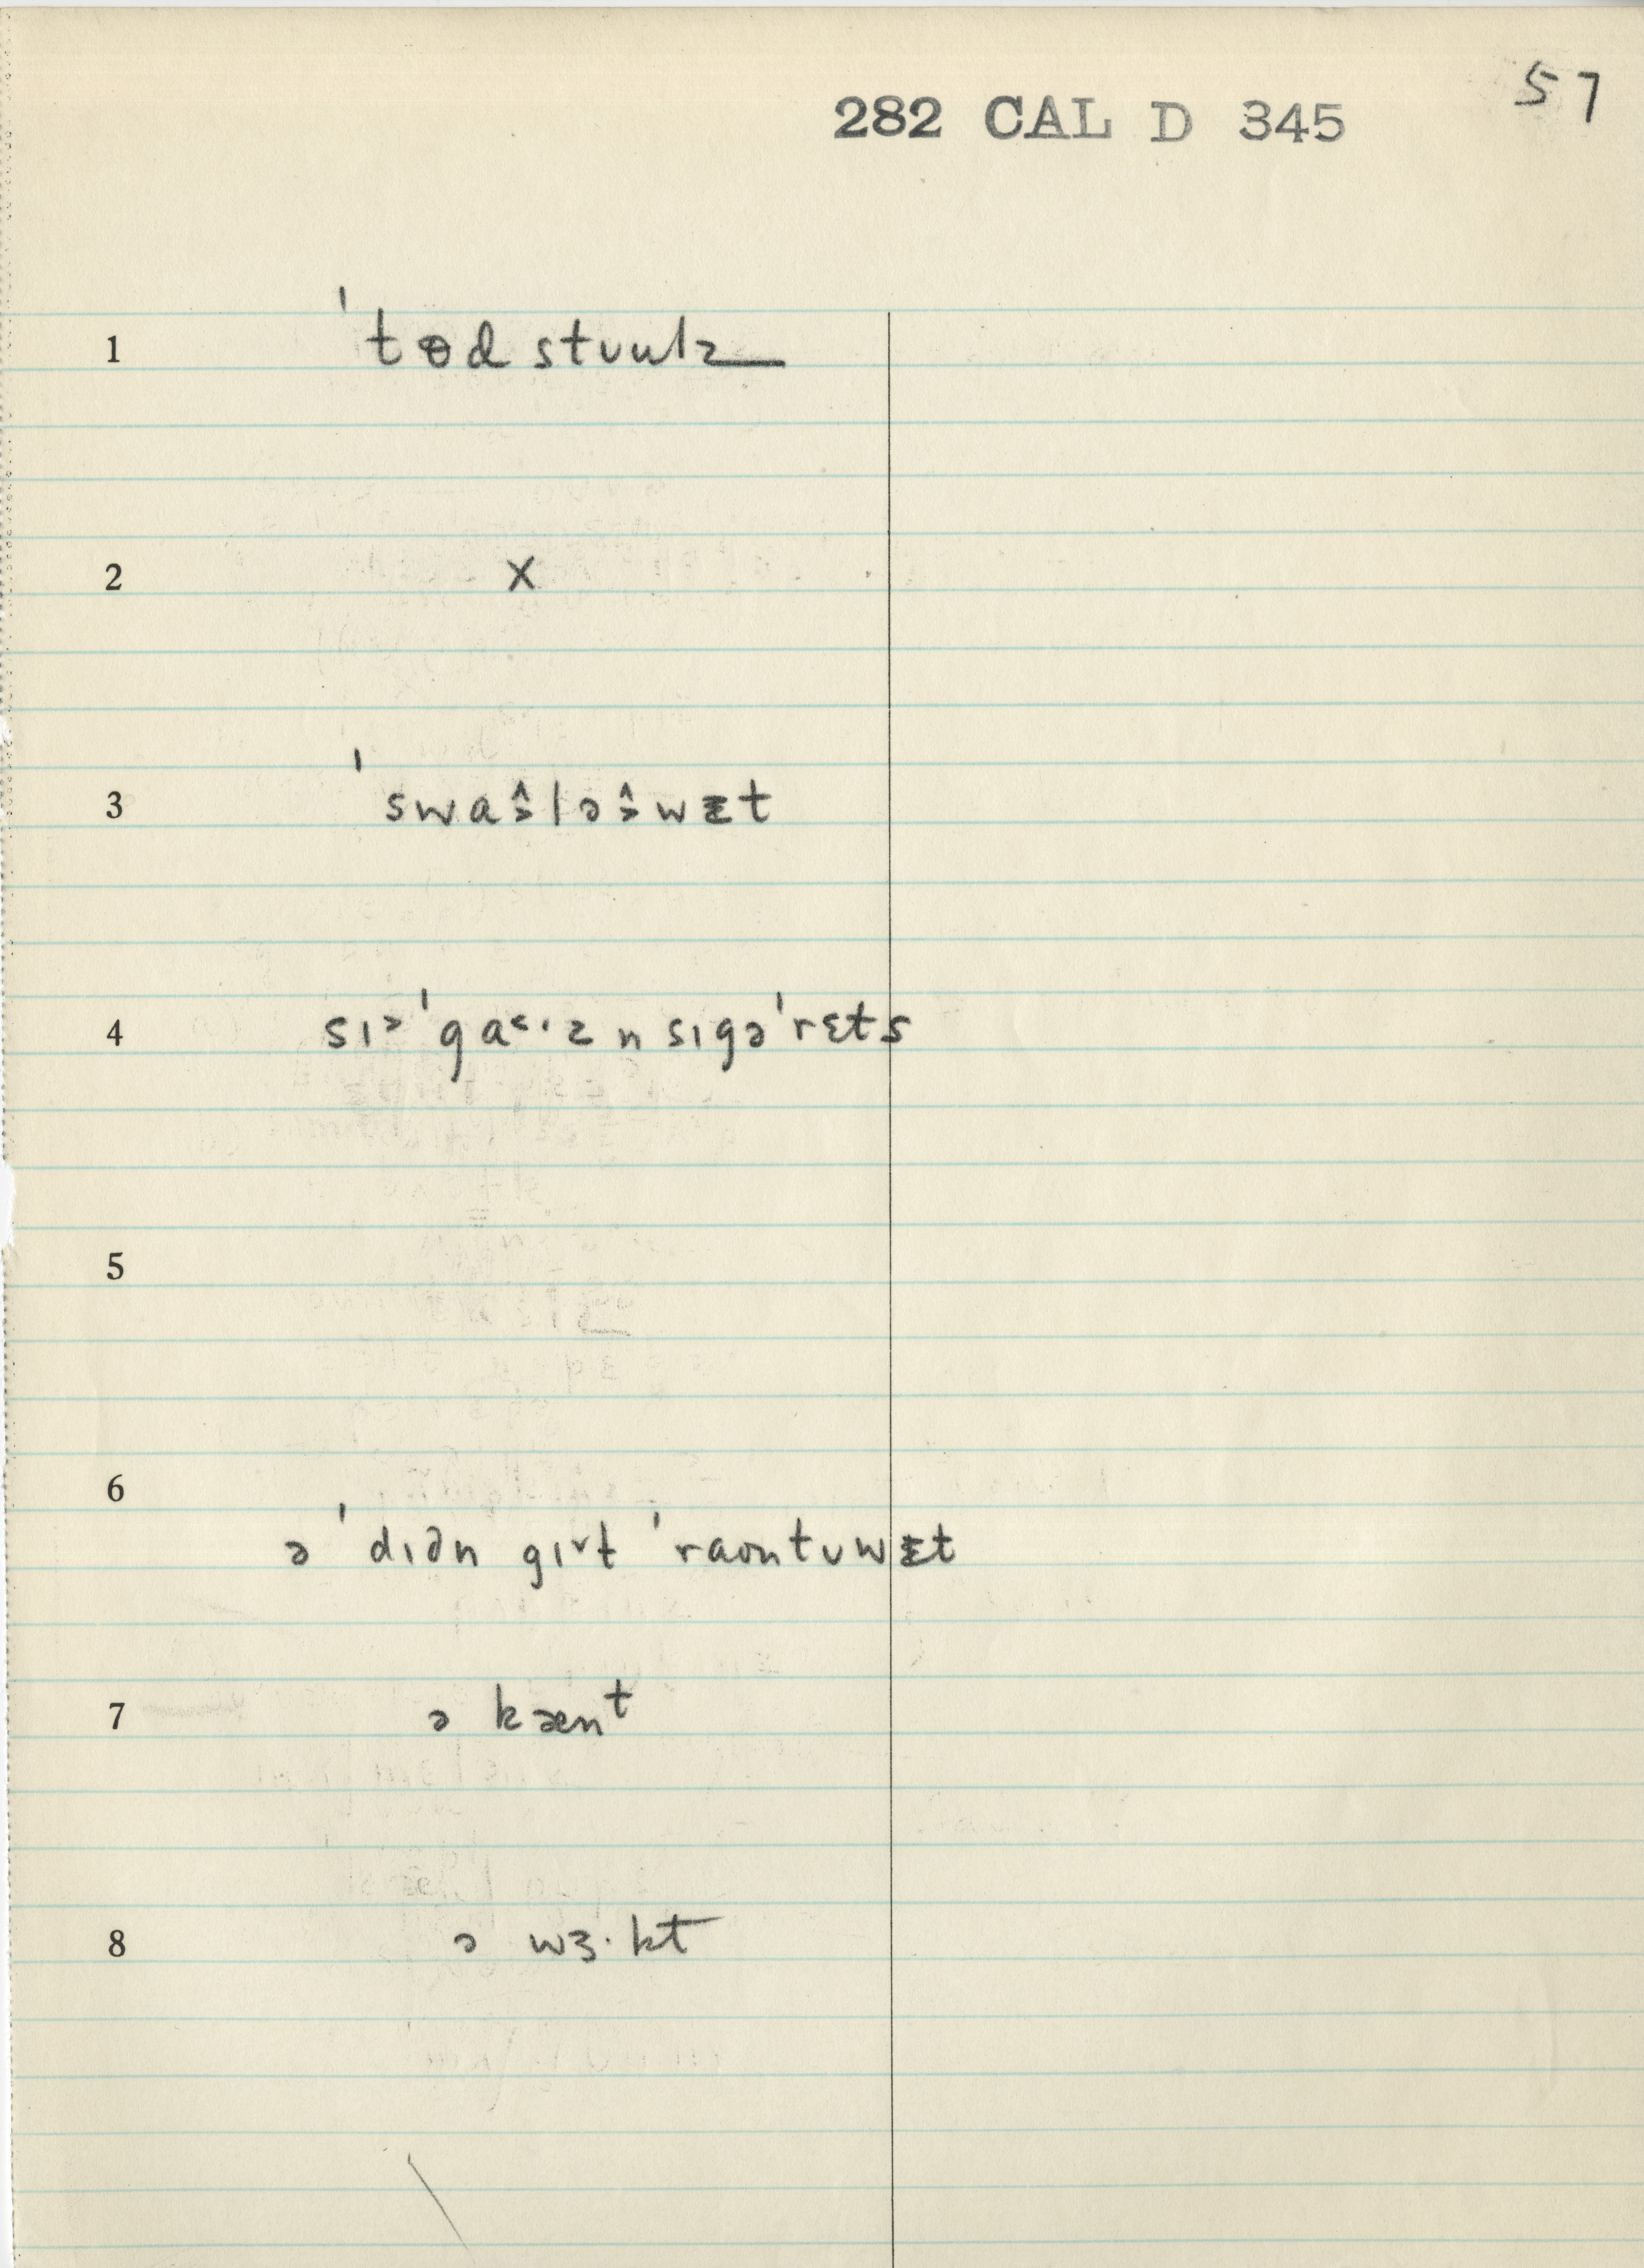 57
282 CAL D 345
1 ˈtɵd stʊulz
2 x
3 ˈswaə̂ləə̂wɪ̵t
4 sɪ˃ˈga˂·z n sɪgəˈrɛts
5
6
ə ˈdɪdn gɪ˅t ˈraontʊwɪ̵t
7 ə kænᵗ
8 ə wɜ·kt